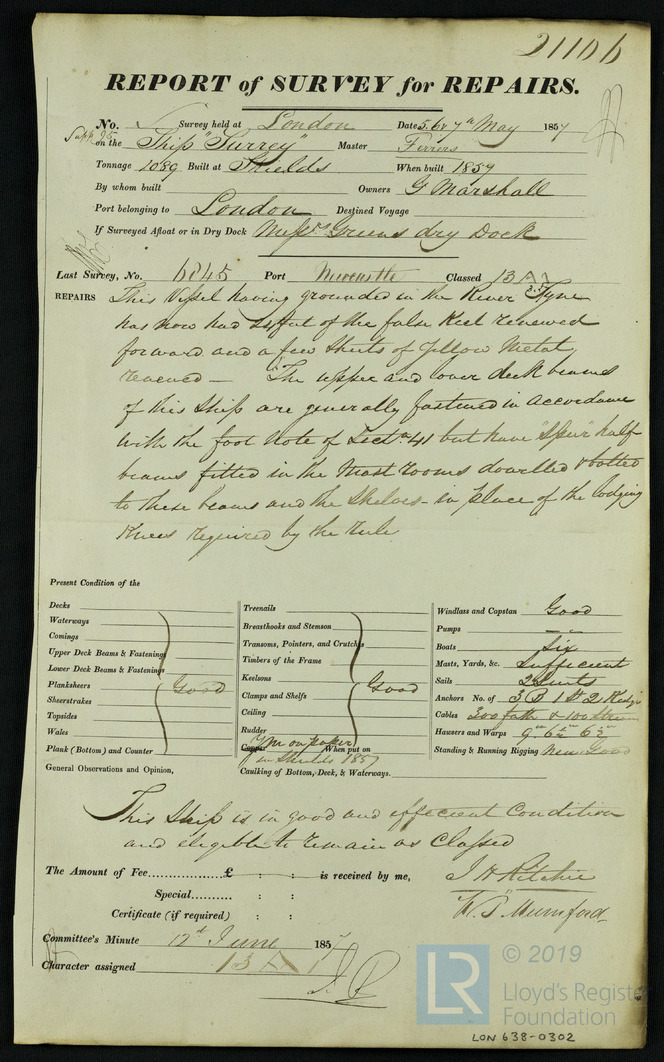 21106
REPORT of SURVEY for REPAIRS.
No. Survey held at London Date 5. 6 & 7th May 1857
on the Ship "Surrey" Master Ferrers
Tonnage 1089 Built at Shields When built 1857
By whom built Owners G Marshall
Port belonging to London Destined Voyage
If Surveyed Afloat or in Dry Dock Messrs Greens dry Dock
Last Survey, No. 6845 Port Newcastle Classed 13 A 1
3.57
REPAIRS This Vessel having grounded in the River Tyne
has now had of the false Keel renewed
forward and a few Sheets of Yellow Metal
renewed — The upper and lower deck beams
of this Ship are generally fastened in accordance
with the foot Note of Sectn 41 but have "Spur" half
beams fitted in the Mast rooms dowelled & bolted
to these beams and the Shelves - in place of the lodging
Knees required by the rule
Present Condition of the
Decks
Waterways
Comings
Upper Deck Beams & Fastenings
Lower Deck Beams & Fastenings
Planksheers Good
Sheerstrakes
Topsides
Wales
Plank (Bottom) and Counter
General Observations and Opinion,
Treenails
Breasthooks and Stemson
Transoms, Pointers, and Crutches
Timbers of the Frame
Keelsons Good
Clamps and Shelfs
Ceiling
Rudder
Copper Ym on paper When put on
in Shields 1857
Caulking of Bottom, Deck, & Waterways.
Windlass and Capstan Good
Pumps — —
Boats Six
Masts, Yards, &c. Sufficient
Sails 2 Suits
Anchors No. of 3 B 1 St 2 Kedge
Cables 300 fath & 100 Stream
Hausers and Warps 9in 6½in 6in
Standing & Running Rigging New Good
This Ship is in good and effecient Condition
and eligible to remain as Classed
The Amount of Fee £ : : is received by me, J H Ritchie
Special : :
W. P. Mumford
Certificate (if required) : :
Committee's Minute 12th June 1857
Character assigned 13 A 1
LR © 2019
Lloyd's Register
Foundation
LON 638-0302